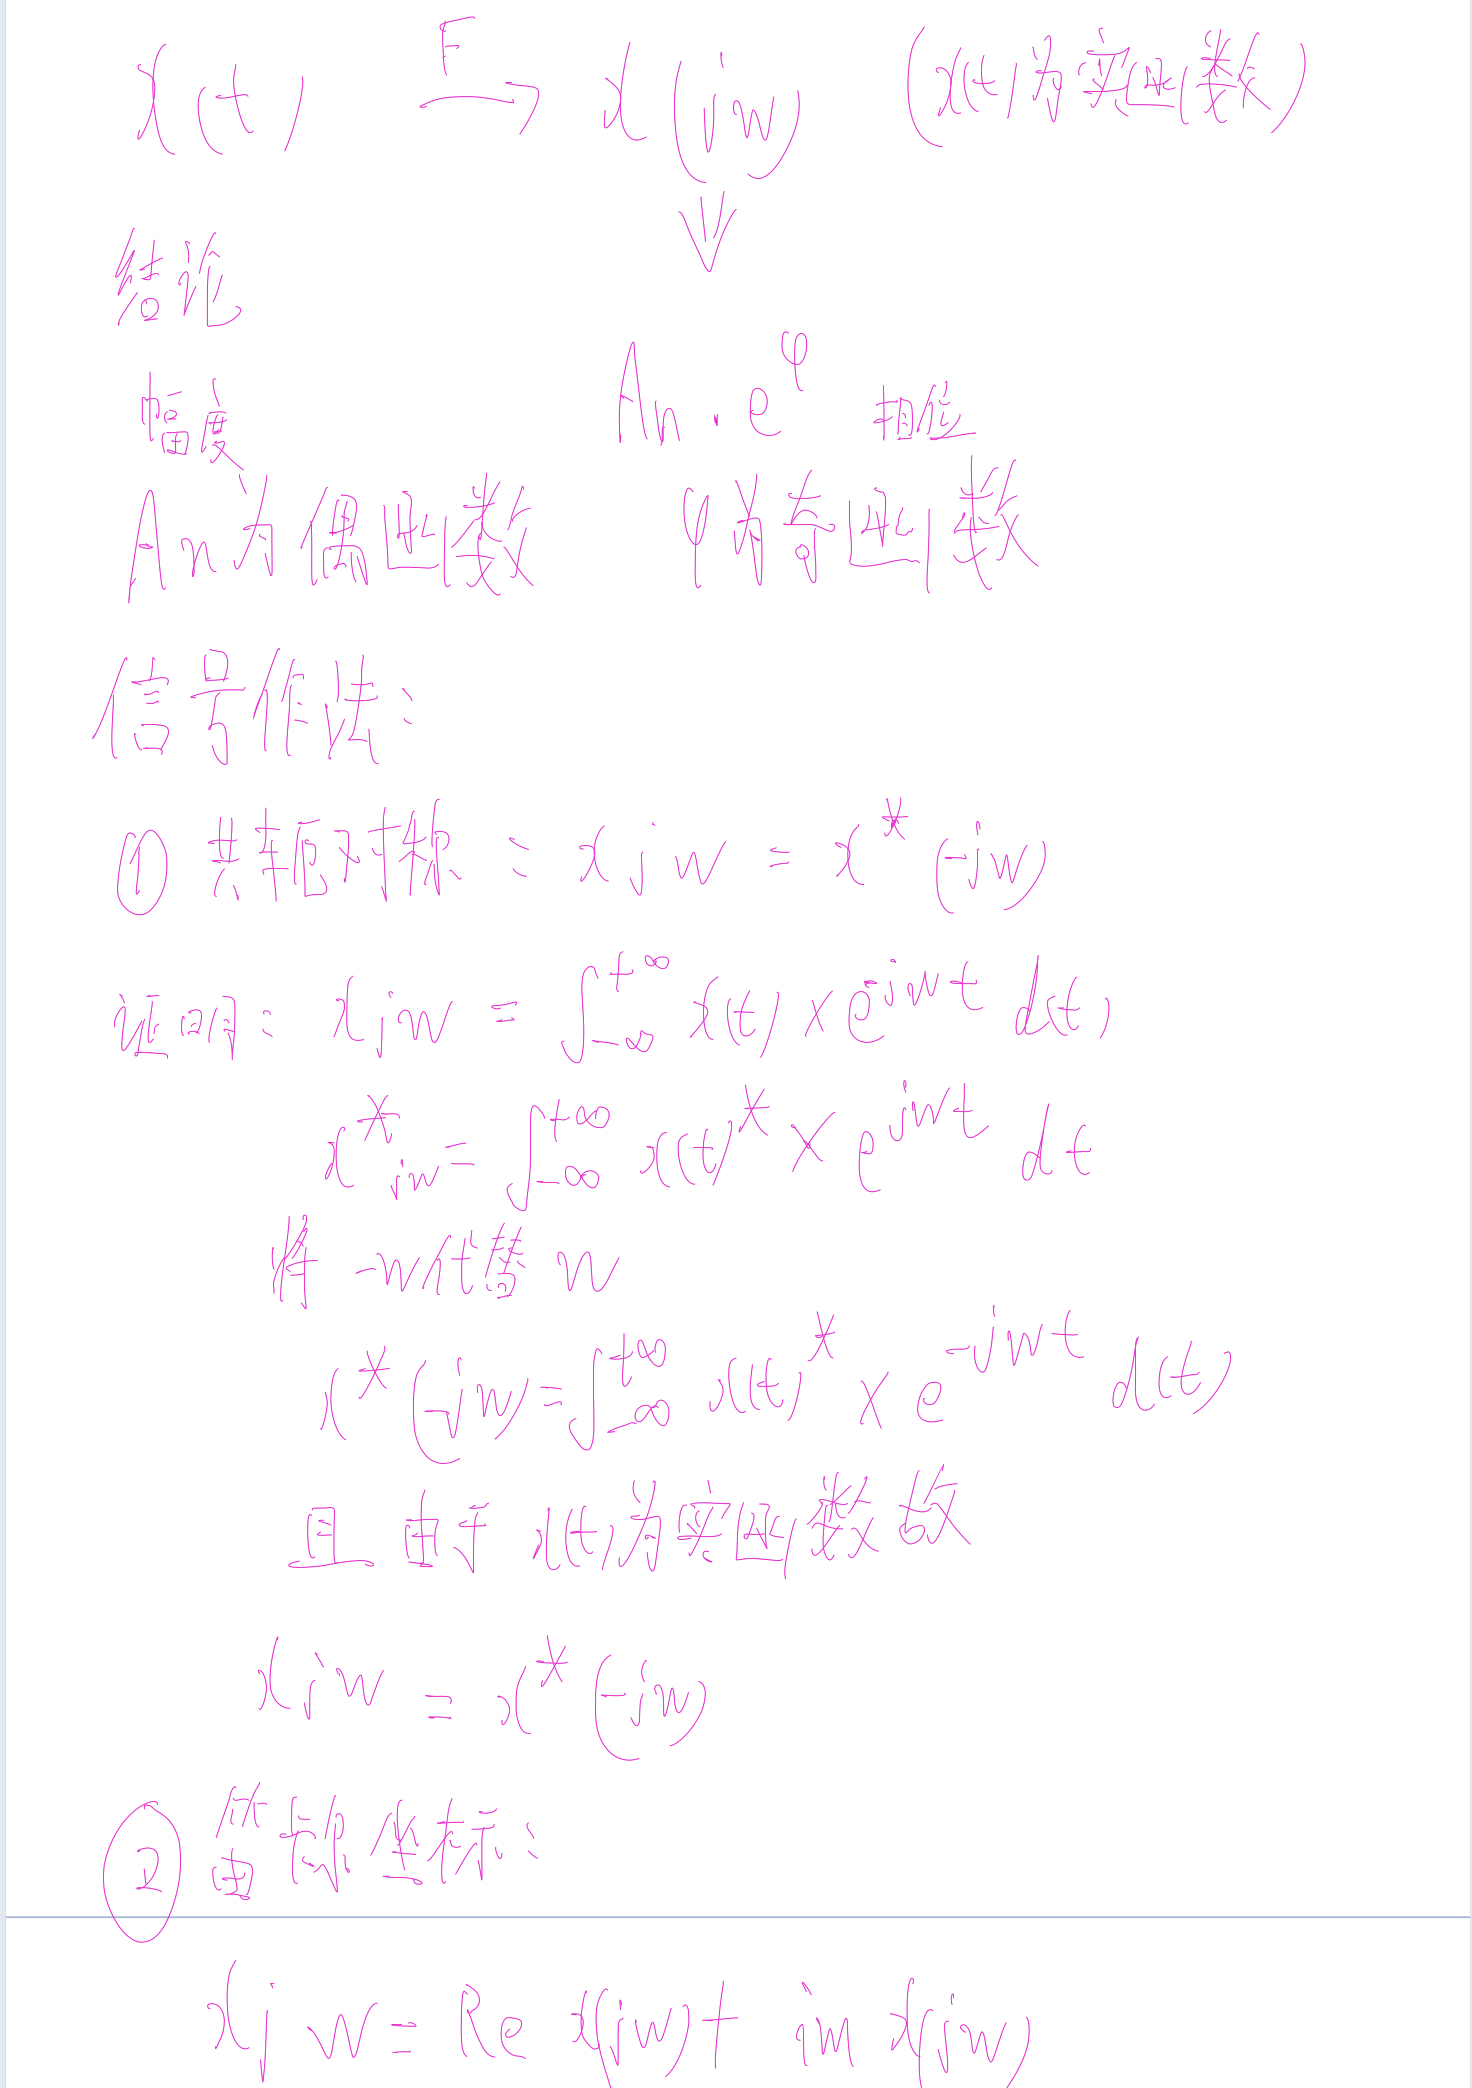 x(t) F→ x(jw) (x(t)为实函数)
结论
幅度 An·e^φ 相位
An为偶函数 φ为奇函数
信号作法:
① 共轭对称: xjw = x*(-jw)
证明: xjw = ∫_{-∞}^{+∞} x(t) × e^{-jwt} d(t)
x*jw = ∫_{-∞}^{+∞} x(t)* × e^{jwt} dt
将 -w代替 w
x*(-jw) = ∫_{-∞}^{+∞} x(t)* × e^{-jwt} d(t)
且 由于 x(t)为实函数 故
xjw = x*(-jw)
② 笛卡尔坐标:
xjw = Re x(jw) + im x(jw)